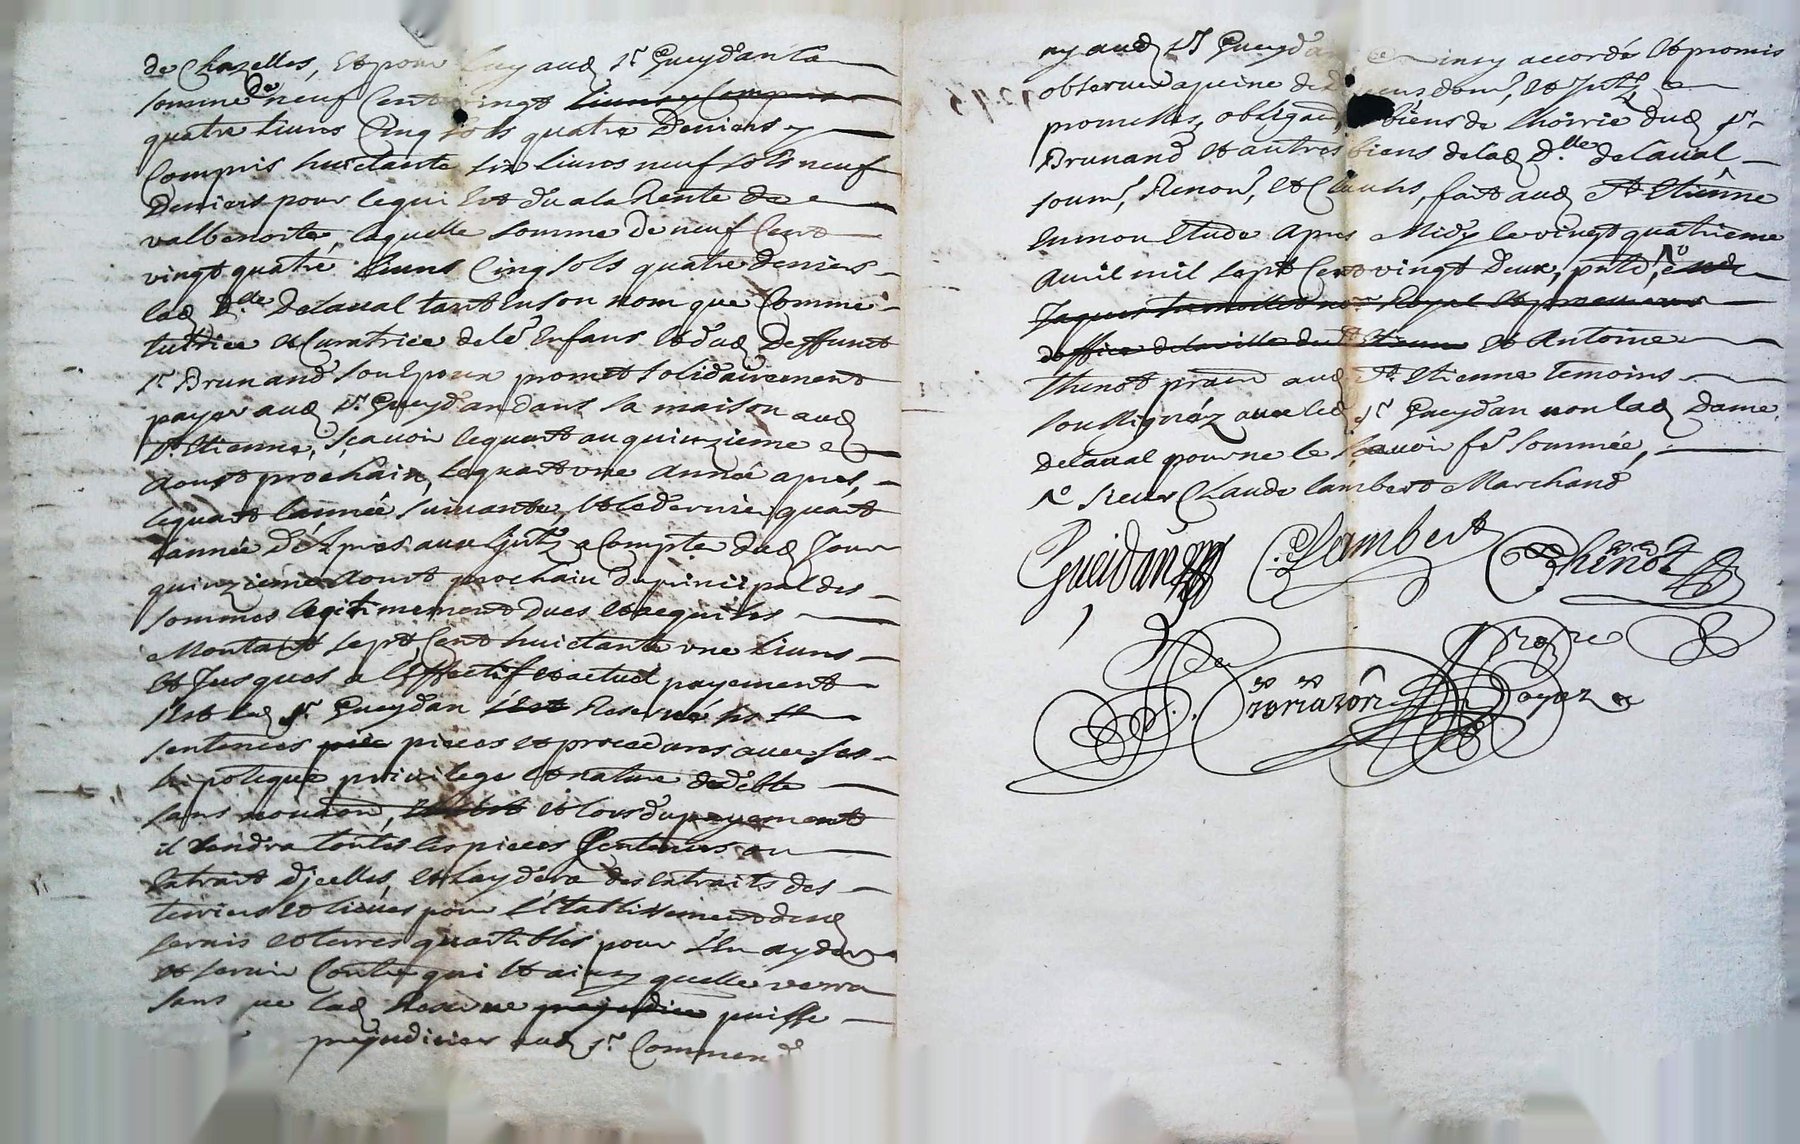 de Chazelles, Et pour luy aud Sr Gueydan la
somme de neuf Cent vingt livres Compris
quatre livres Cinq sols quatre Deniers y
Compris huictante six livres neuf sols neuf
Deniers pour lequi Est du a la Rente de
valbenoite, laquelle somme De neuf Cent
vingt quatre livres Cinq sols quatre deniers
lad Dlle Delaval tant En son nom que Comme
tutrice et Curatrice de ses Enfans Et dud Deffunct
Sr Brunand son Epoux promet solidairement
payer aud Sr Gueydan dans sa maison aud
St Etienne, sçavoir le quart au quinzieme
Aoust prochain, le quart une Année apres,
le quart l'année suivante, Et le dernier quart
l'année d'Apres aux Intz a Compter dud Jour
quinzieme Aoust prochain du principal des
sommes legitimement Dues Et acquises
Montant sept Cent huictante une livres
Et Jusques a l'Effectif Et actuel payement
s'Est led Sr Gueydan s'Est Reservé ses
sentences pièc pieces et procedures avec son
hipoteque privilege Et nature de debte
sans novaon, Et lors du payement
il Rendra toutes les pieces sentences ou
Extrait d'jcelles, Et l'aydera des Extraits des
terriers Et lièves pour l'Etablissement desd
servis Et terres quartables pour s'En ayder
Et servir Contre qui Et ainsy quelle verra
sans que lad Reserve prejudice puisse
prejudicier aud Sr Commend
ny aud Sr Gueydan Ce insy accordé Et promis
observer a peine de Despens dom, Et Intz
promesses, obligaon, biens de l'hoirie dud Sr
Brunand Et autres biens de lad Dlle de Laval
soum, Renon, Et Clauses, fait aud St Etiênne
En mon Etude Apres Midy le vingt quatrieme
Avril mil sept Cent vingt Deux, pnts,
Jaques no Royal Et procureur
d'office de la ville de St Etienne Et Antoine
Thenot pratn aud St Etienne Temoins
soussignéz avec led Sr Gueydan non lad Dame
Delaval pour ne le sçavoir fe sommée,
No sieur Claude Lambert Marchand
Gueidan CLambert Thenot